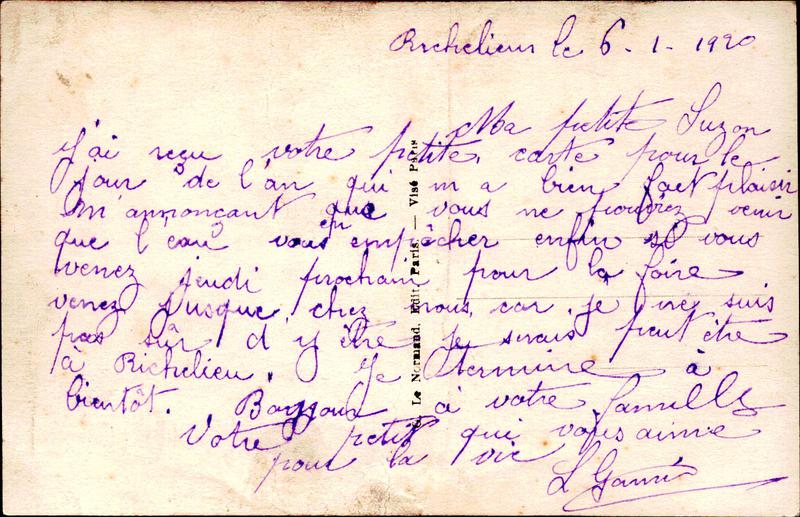 Richelieu le 6 - 1 - 1920
Ma petite Suzon
J'ai reçu votre petite carte pour le
jour de l'an qui m a bien fact plaisir
m'annonçant que vous ne pouviez venir
que l'eau vous en empêcher enfin si vous
venez jeudi prochain pour la foire
venez jusque chez nous car je ne suis
pas sûr d y être je serais peut être
à Richelieu. Je termine à
bientôt. Bonjour à votre famille
Votre petit qui vous aime
pour la vie
L
Le Normand, Edit. Paris. — Visé Paris